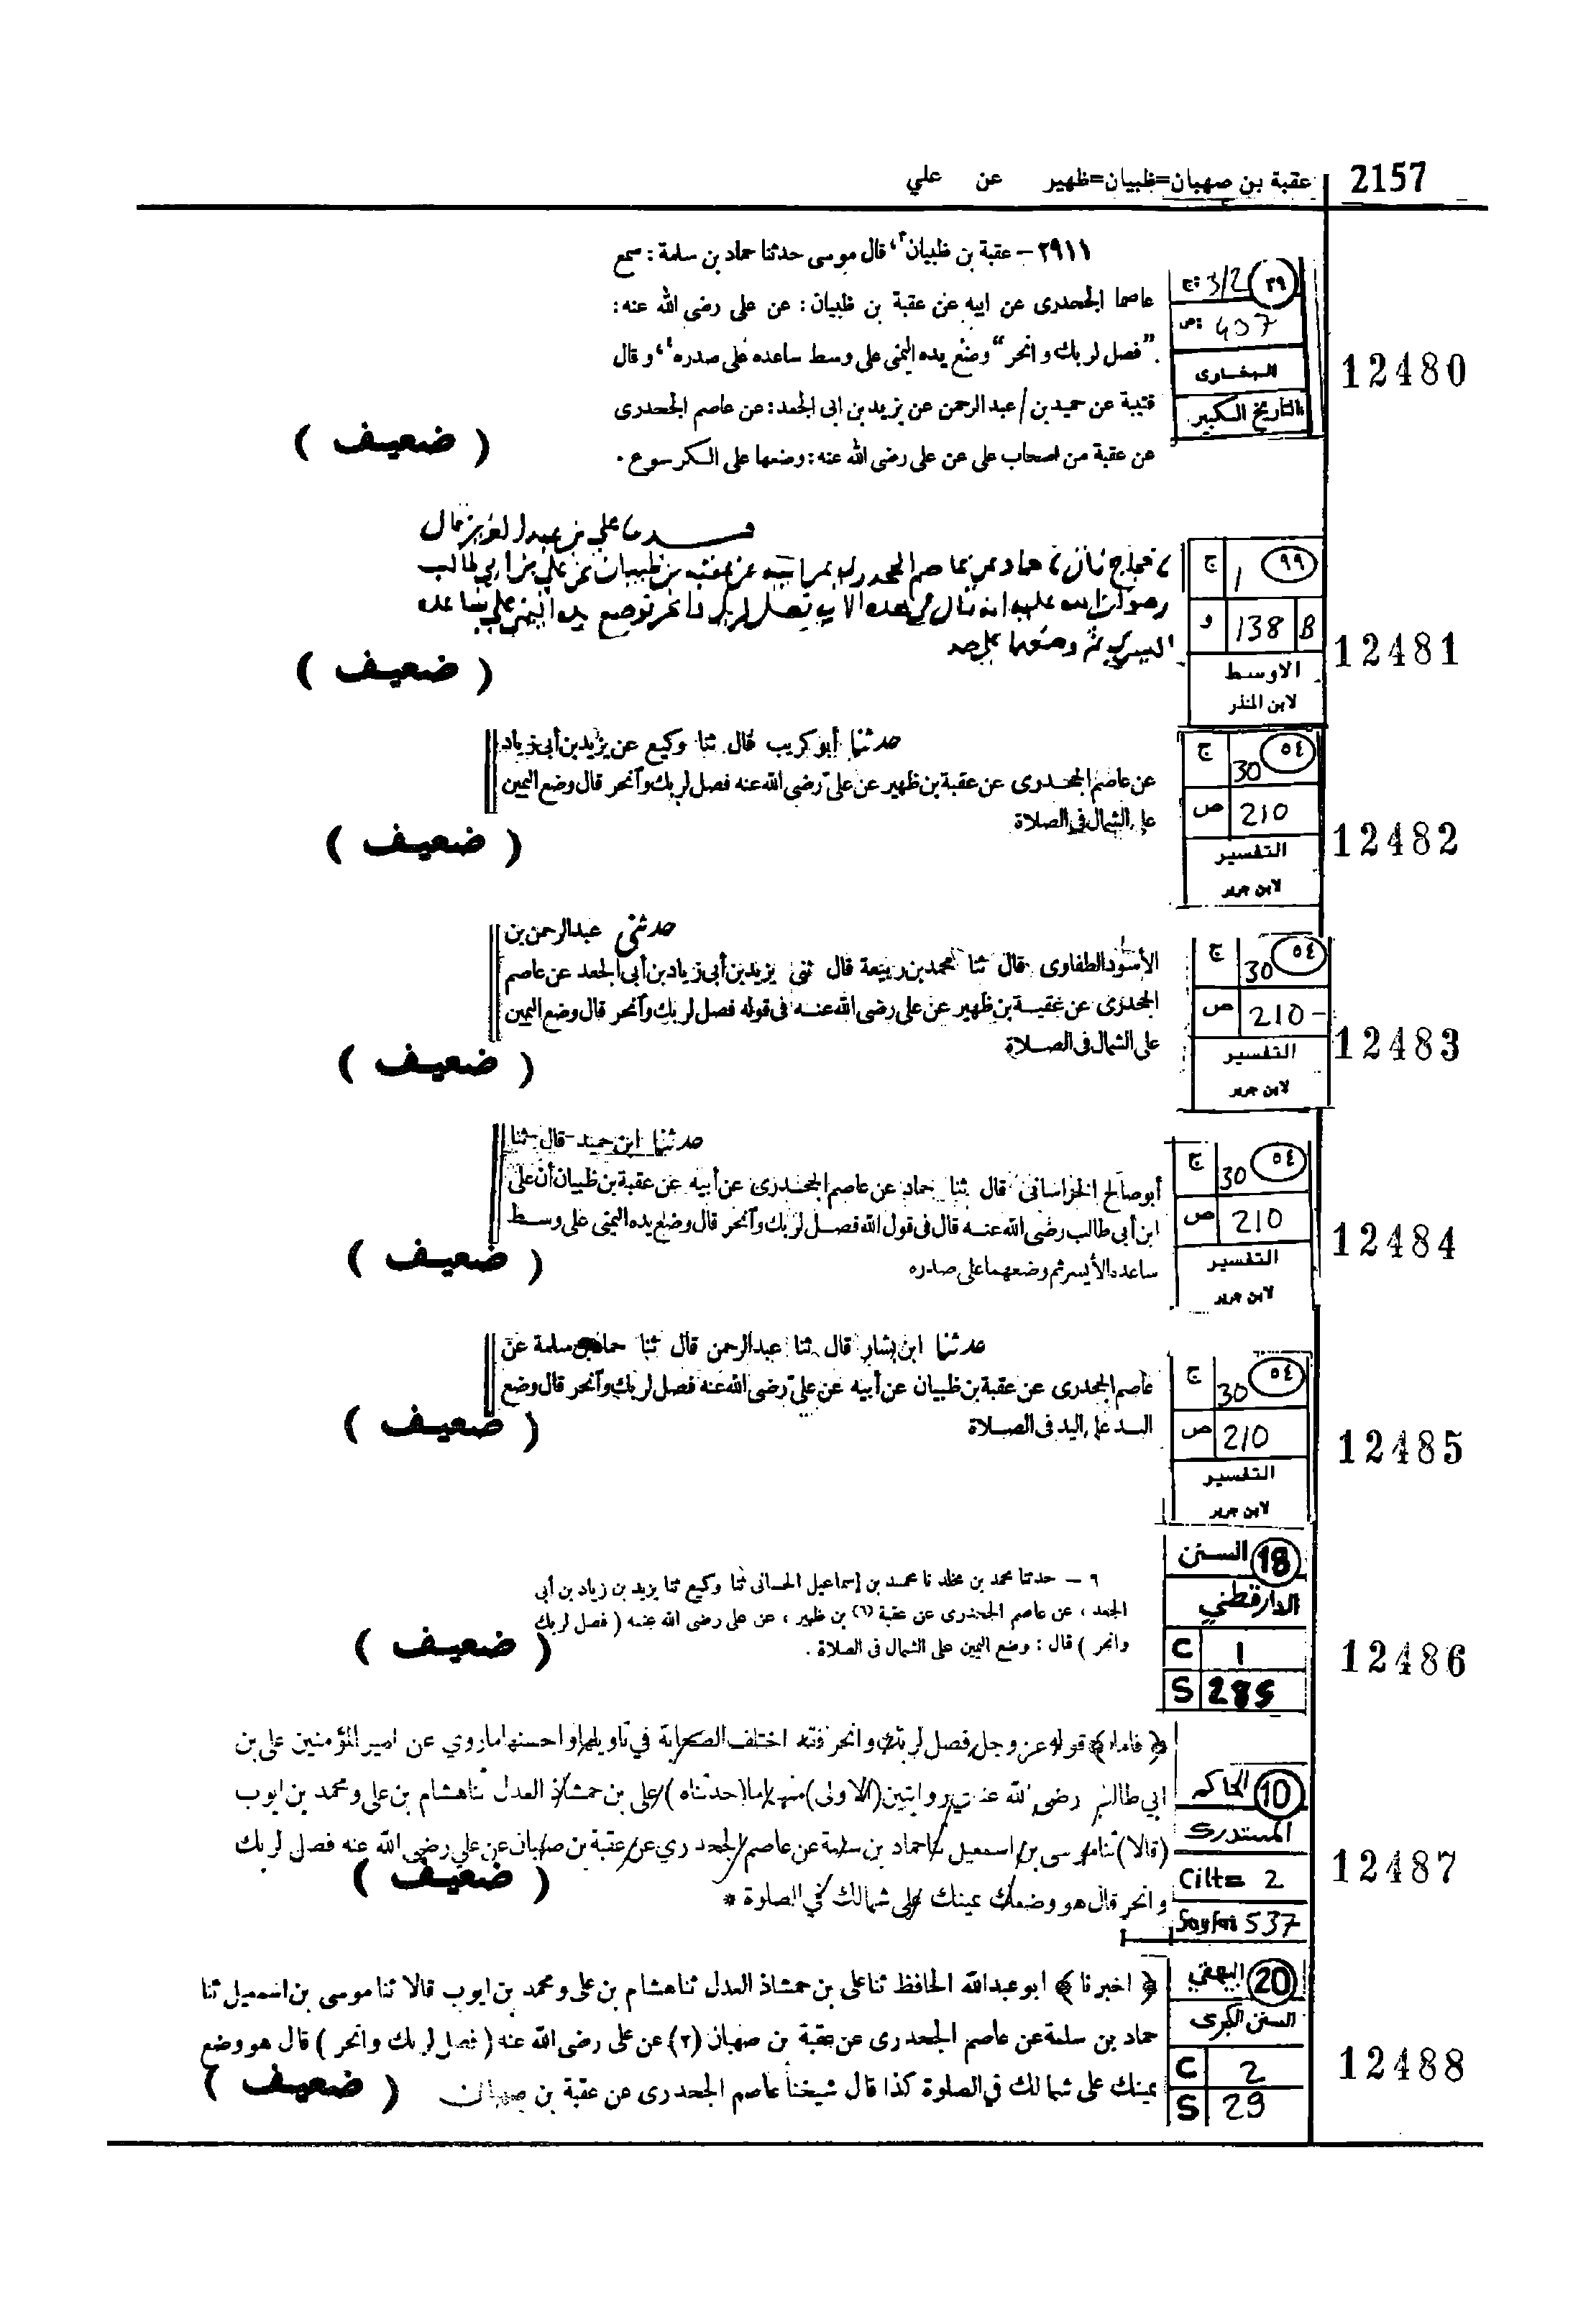 2157 عقبة بن صهبان=ظبيان=ظهير عن علي
12480
٣٩ 3/2 ج:
ص:
البخارى
التاريخ الكبير
٢٩١١ – عقبة بن ظبيان قال موسى حدثنا حماد بن سلمة : سمع
عاصما الجحدرى عن ابيه عن عقبة بن ظبيان : عن على رضى الله عنه :
”فصل لربك و انحر“ وضع يده اليمنى على وسط ساعده على صدره ، و قال
قتيبة عن حميد بن عبد الرحمن عن يزيد بن ابى الجعد : عن عاصم الجحدرى
عن عقبة من اصحاب على عن على رضى الله عنه : وضعها على الكرسوع .
( ضعيف )
12481
٩٩ 1 ج
B 138 و
الاوسط
لابن المنذر
علي بن عبد العزيز قال
حماد عن عاصم الجحدري عن ابيه عن عقبة بن ظبيان عن علي بن أبي طالب
رضوان الله عليه انه قال في هذه الاية فصل لربك وانحر فوضع يده اليمنى على ساعده
اليسرى ثم وضعهما على صد
( ضعيف )
12482
٥٤ 30 ج
210 ص
التفسير
لابن جرير
حدثنا أبو كريب قال ثنا وكيع عن يزيد بن أبى زياد
عن عاصم الجحدرى عن عقبة بن ظهير عن علىّ رضى الله عنه فصل لربك وانحر قال وضع اليمين
على الشمال فى الصلاة
( ضعيف )
12483
٥٤ 30 ج
210 ص
التفسير
لابن جرير
حدثنى عبد الرحمن بن
الأسود الطفاوى قال ثنا محمد بن ربيعة قال ثنى يزيد بن أبى زياد بن أبى الجعد عن عاصم
الجحدرى عن عقبة بن ظهير عن على رضى الله عنه فى قوله فصل لربك وانحر قال وضع اليمين
على الشمال فى الصلاة
( ضعيف )
12484
٥٤ 30 ج
210 ص
التفسير
لابن جرير
حدثنا ابن حميد قال ثنا
أبو صالح الخراسانى قال ثنا حماد عن عاصم الجحدرى عن أبيه عن عقبة بن ظبيان أن على
ابن أبى طالب رضى الله عنه قال فى قول الله فصل لربك وانحر قال وضع يده اليمنى على وسط
ساعده الأيسر ثم وضعهما على صدره
( ضعيف )
12485
٥٤ 30 ج
210 ص
التفسير
لابن جرير
حدثنا ابن بشار قال ثنا عبد الرحمن قال ثنا حماد بن سلمة عن
عاصم الجحدرى عن عقبة بن ظبيان عن أبيه عن علىّ رضى الله عنه فصل لربك وانحر قال وضع
اليد على اليد فى الصلاة
( ضعيف )
12486
18 السنن
الدارقطني
C 1
S 285
٦ – حدثنا محمد بن مخلد نا محمد بن إسماعيل الحسانى ثنا وكيع ثنا يزيد بن زياد بن أبى
الجعد ، عن عاصم الجحدرى عن عقبة (٦) بن ظهير ، عن على رضى الله عنه ( فصل لربك
وانحر ) قال : وضع اليمين على الشمال فى الصلاة .
( ضعيف )
12487
10 الحاكم
المستدرك
Cilt= 2
Sayfa 537
﴿ فاما ﴾ قوله عز وجل فصل لربك وانحر فقد اختلف الصحابة في تاويلها واحسنها ما روي عن امير المؤمنين على بن
ابي طالب رضى الله عنه في روايتين (الاولى) منهما ما (حدثناه) على بن حمشاذ العدل ثنا هشام بن على ومحمد بن ايوب
(قالا) ثنا موسى بن اسمعيل ثنا حماد بن سلمة عن عاصم الجحدري عن عقبة بن صهبان عن علي رضى الله عنه فصل لربك
وانحر قال هو وضعك يمينك على شمالك في الصلوة *
( ضعيف )
12488
20 البيهقي
السنن الكبرى
C 2
S 29
﴿ اخبرنا ﴾ ابو عبد الله الحافظ ثنا على بن حمشاذ العدل ثنا هشام بن على ومحمد بن ايوب قالا ثنا موسى بن اسمعيل ثنا
حماد بن سلمة عن عاصم الجحدرى عن عقبة بن صهبان (٢) عن على رضى الله عنه ( فصل لربك وانحر ) قال هو وضع
يمينك على شمالك في الصلوة كذا قال شيخنا عاصم الجحدرى عن عقبة بن صهبان
( ضعيف )